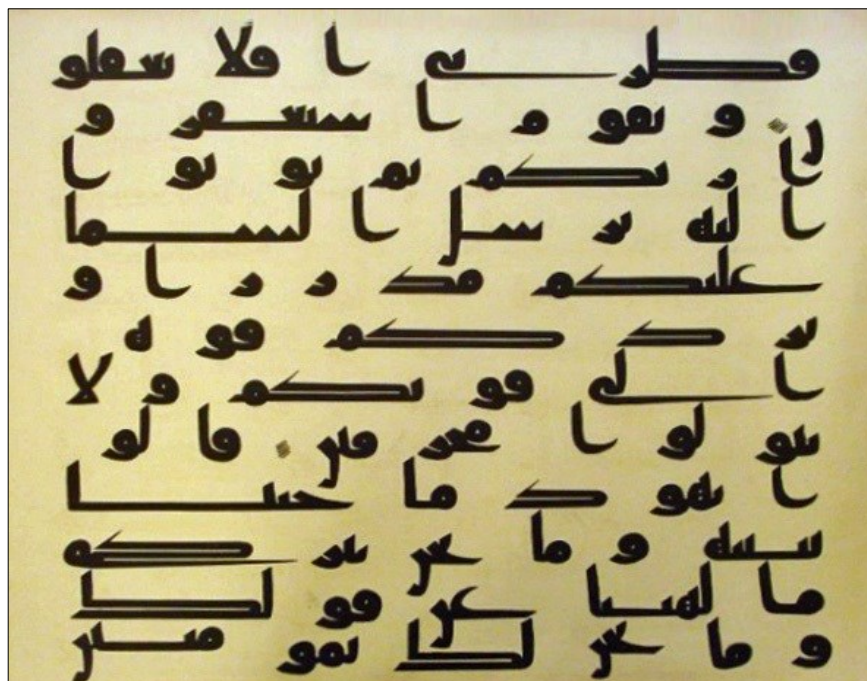 فطرني افلا تعقلو
ن ويقوم استغفرو
ا ربكم ثم توبوا
اليه يرسل السما
عليكم مدرارا و
يزدكم قوه
الى قوتكم ولا
تتولوا مجرمين قالو
ا يهود ما جيتنا
ببينه وما نحن بتركي
الهتنا عن قولك
وما نحن لك بمومنين